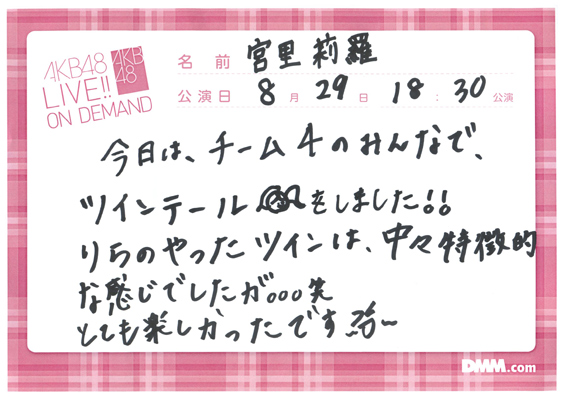 AKB48
LIVE!!
ON DEMAND
AKB
48
名前 宮里莉羅
公演日 8月29日 18:30公演
今日は、チーム4のみんなで、
ツインテールをしました!!
りらのやったツインは、中々特徴的
な感じでしたが。。。笑
とても楽しかったです
DMM.com